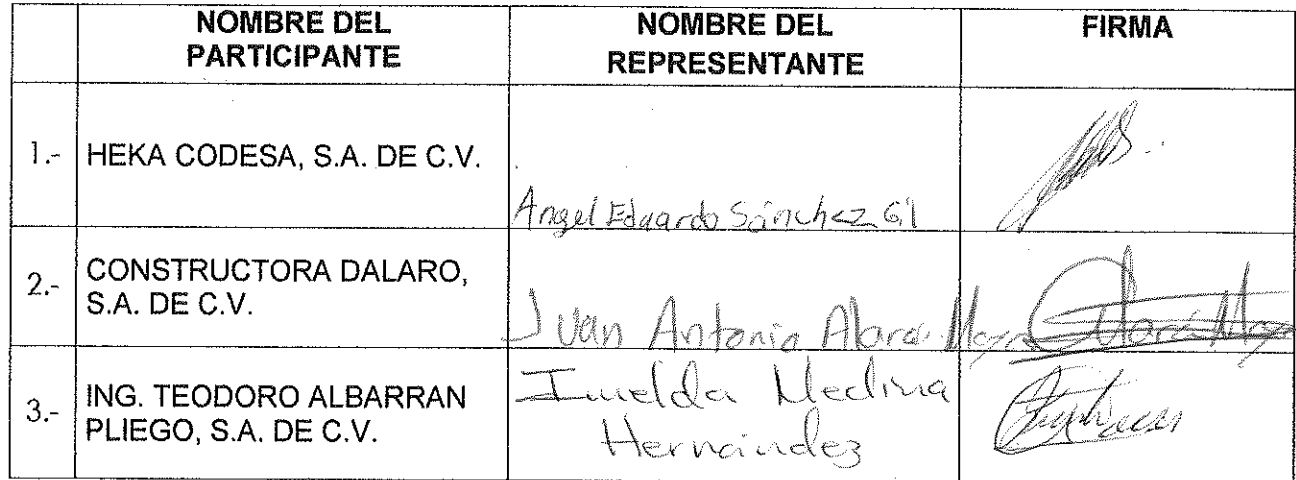 NOMBRE DEL PARTICIPANTE
NOMBRE DEL REPRESENTANTE
FIRMA
1.- HEKA CODESA, S.A. DE C.V.
Angel Eduardo Sánchez Gil
2.- CONSTRUCTORA DALARO, S.A. DE C.V.
Juan Antonio
3.- ING. TEODORO ALBARRAN PLIEGO, S.A. DE C.V.
Imelda Medina
Hernández